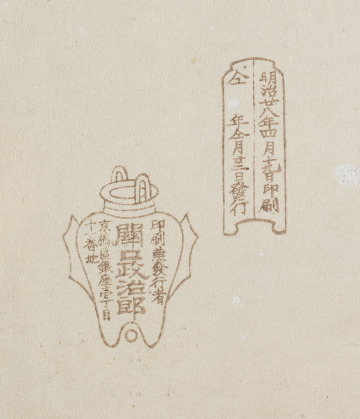 明治廿八年四月十九日印刷
仝 年仝月廿三日發行
印刷兼發行者
關口政治郎
京橋區銀座壱丁目
十一番地